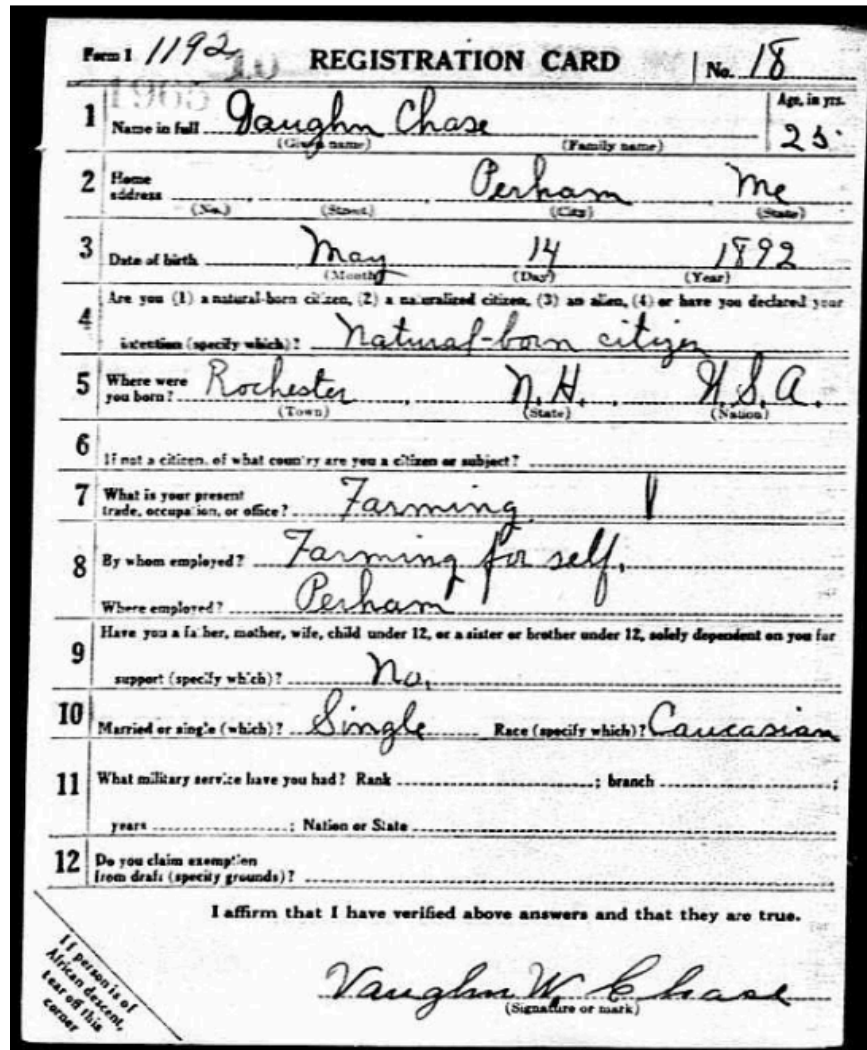 Form 1 1192 REGISTRATION CARD No. 18
1965
1 Name in full Vaughn Chase Age, in yrs.
(Given name) (Family name) 25
2 Home address Perham Me
(No.) (Street) (City) (State)
3 Date of birth May 14 1892
(Month) (Day) (Year)
Are you (1) a natural-born citizen, (2) a naturalized citizen, (3) an alien, (4) or have you declared your
4 intention (specify which)? Natural-born citizen
5 Where were you born? Rochester, N.H., U.S.A.
(Town) (State) (Nation)
6 If not a citizen, of what country are you a citizen or subject?
7 What is your present
trade, occupation, or office? Farming
8 By whom employed? Farming for self,
Where employed? Perham
9 Have you a father, mother, wife, child under 12, or a sister or brother under 12, solely dependent on you for
support (specify which)? No,
10 Married or single (which)? Single Race (specify which)? Caucasian
11 What military service have you had? Rank ; branch ;
years ; Nation or State
12 Do you claim exemption
from draft (specify grounds)?
I affirm that I have verified above answers and that they are true.
Vaughn W. Chase
(Signature or mark)
If person is of
African descent,
tear off this
corner